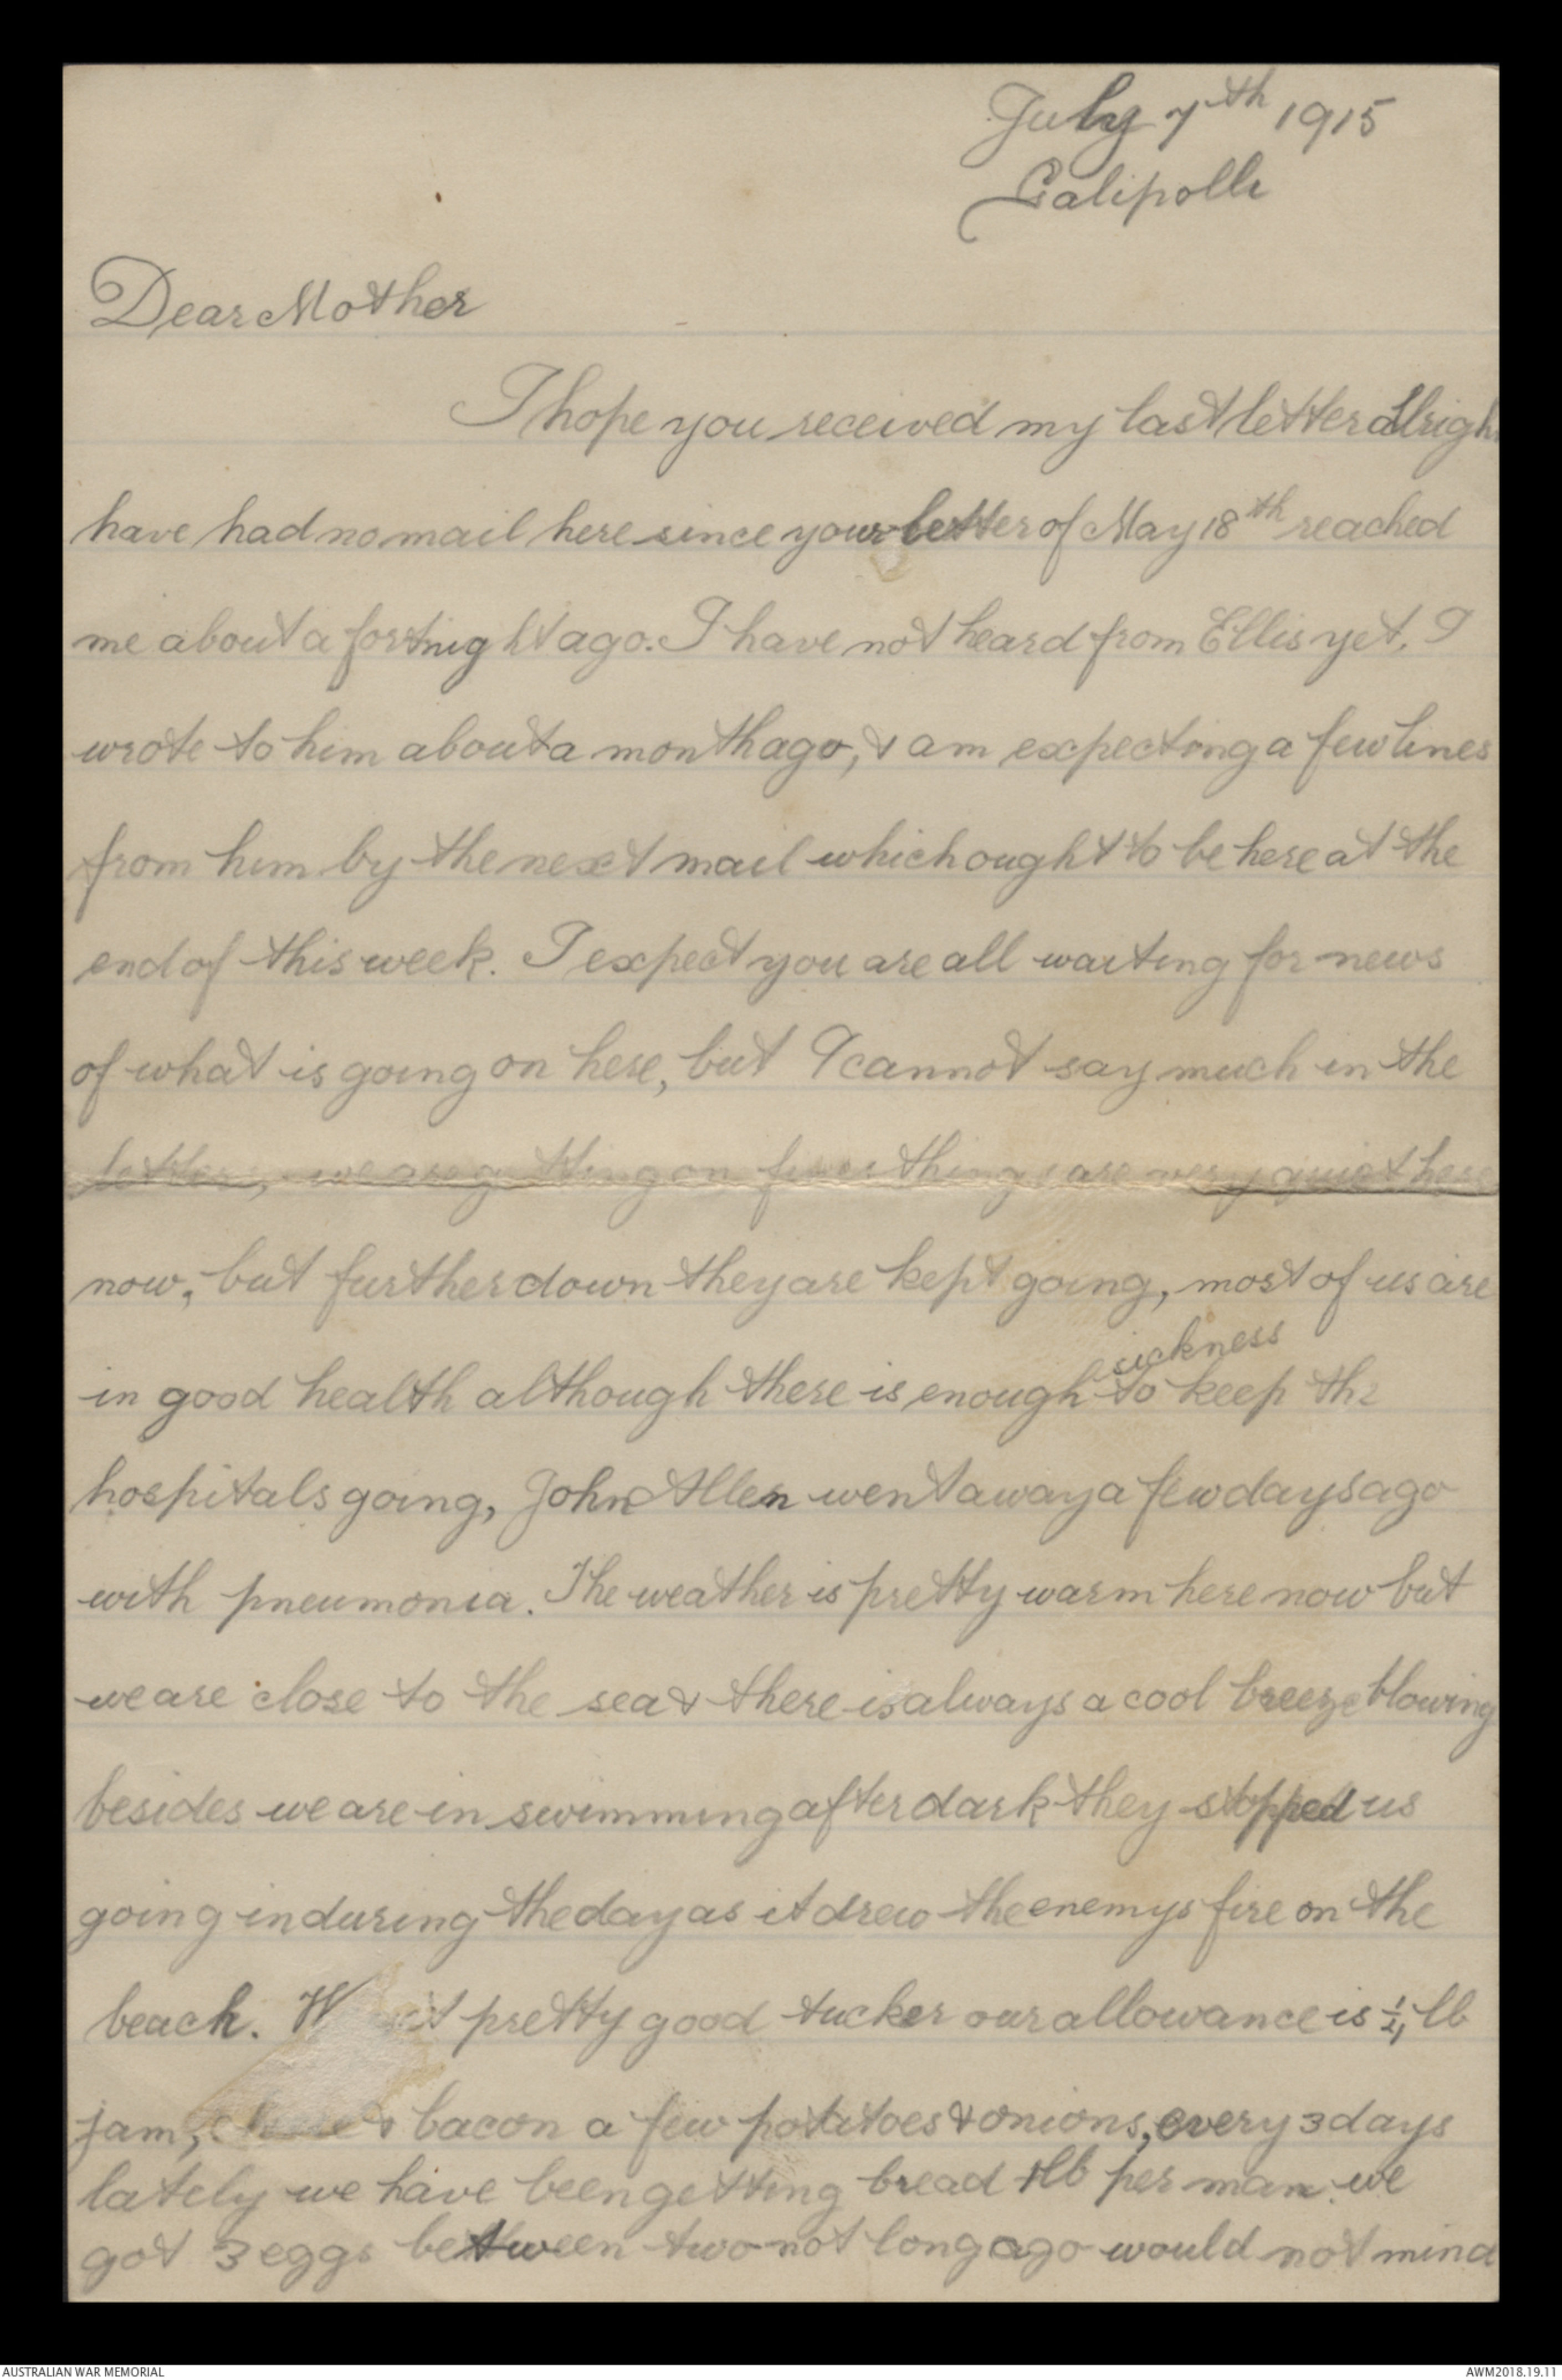 July 7th 1915
Galipolli
Dear Mother
I hope you received my last letter allrigh
have had no mail here since your letter of May 18th reached
me about a fortnight ago. I have not heard from Ellis yet, I
wrote to him about a month ago, & am expecting a few lines
from him by the next mail which ought to be here at the
end of this week. I expect you are all waiting for news
of what is going on here, but I cannot say much in the
letters, we are getting on fine things are very quiet here
now, but further down they are kept going, most of us are
sickness
in good health although there is enough to keep the
hospitals going, John Allen went away a few days ago
with pneumonia. The weather is pretty warm here now but
we are close to the sea & there is always a cool breeze blowing
besides we are in swimming after dark they stopped us
going in during the day as it drew the enemys fire on the
beach. W pretty good tucker our allowance is 1/4 lb
jam, & bacon a few potatoes & onions, every 3 days
lately we have been getting bread 1lb per man. we
got 3 eggs between two not long ago would not mind
AUSTRALIAN WAR MEMORIAL
AWM2018.19.11